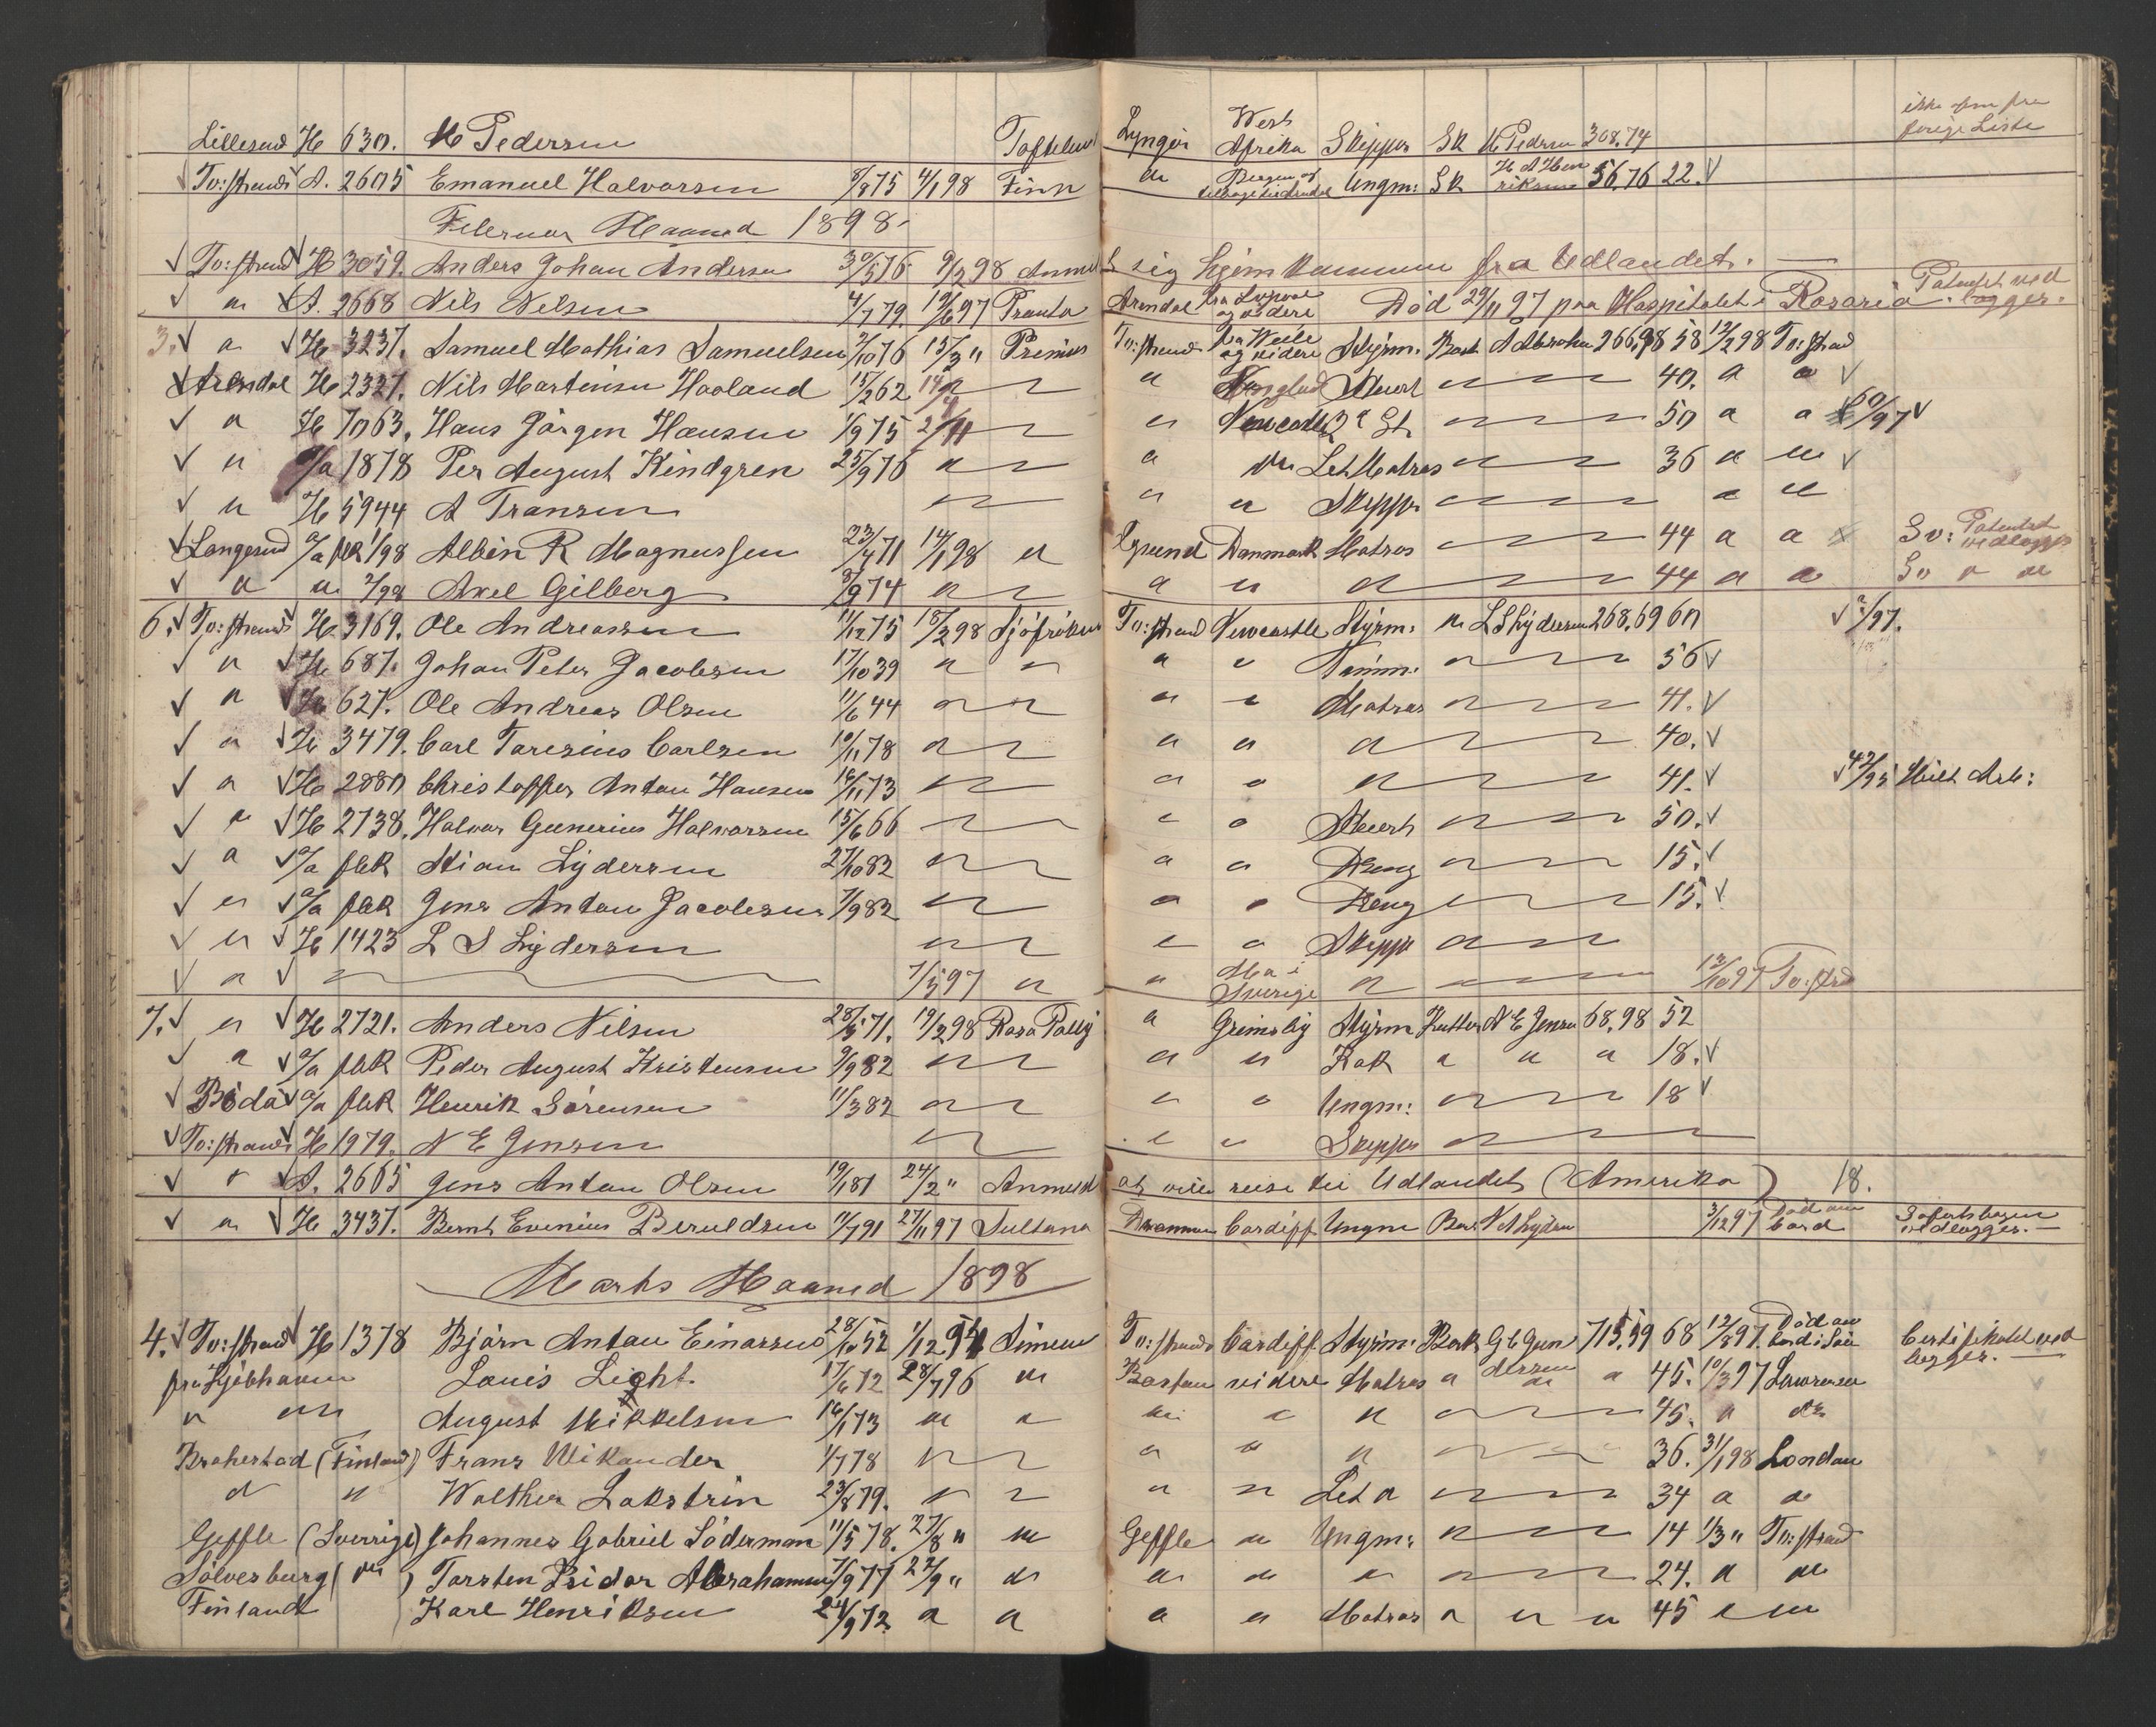 Lillesand H 630. M Pedersen Lyngör West Afrika Skipper Sk M Pedersen 308.74 ikke opm fra forige Liste
Tv:strand A. 2605 Emanuel Halvorsen 8/8 75 4/1 98 Finn Bergen og tilbage til Arendal Ungm: Sk H A Henriksen 56.76 22.
Februar Maaned 1898
Tv:strand H 3059. Anders Johan Andersen 30/5 76 9/2 98 Anmeldt sig hjemkommen fra Udlandet.
" A. 2668 Nils Nelsen 4/7 79. 19/6 97 Pronto Arendal fra Lirpool og videre Död 29/11 97 paa Hospitalet i Rosario. Patentet vedlegges.
3. " H 3237. Samuel Mathias Samuelsen 2/10 76 15/3 " Premier Tv:strand fra Weile og videre Styrm. Bark A Abraha 266,98 58 12/2 98 Tv:strand
Arendal H 2327. Nils Martinsen Haaland 15/2 62 " Stuert 40. " "
" H 7063. Hans Jörgen Hansen 1/9 75 2/11 " Newcastle 2d St 50 " " 60/97
" a/a 1878 Per August Kindgren 25/9 76 " " " Let Matros 36 " "
" H 5944 A Fransen " " Skipper " "
Langesund a/a pk 1/98 Albin R Magnussen 23/4 71 14/1 98 " Egersund Danmark Matros 44 " " Sv: Patentet vedlegges
" " 2/98 Axel Gilberg 8/9 74 " " " " 44 " " Sv " "
6. Tv:strand H. 3169. Ole Andreassen 11/12 75 18/2 98 Sjöfröken Tv:strand Newcastle Styrm: " L S Lydersen 268.69 60 2/97.
" H 687. Johan Peter Jacobsen 17/10 39 " " " " Tömm: 56
" H 627. Ole Andreas Olsen 11/6 44 " " Matros 41.
" H 3479. Carl Taresius Carlsen 10/11 78 " " " 40.
" H 2880 Christoffer Anton Hansen 16/11 73 " " " 41. 42/95 Milt Arb:
" H 2738. Halvor Gunerius Halvorsen 15/6 66 " " Stuert 50.
" a/a pk Stian Lydersen 27/10 82 " " Dreng 15.
" a/a pk Jens Anton Jacobsen 7/9 82 " " Dreng 15.
" H 1423 L S Lydersen " " Skipper "
" 7/5 97 " " Ma i Sverige " 12/10 97 Tv:strd
7. " H 2721. Anders Nilsen 28/5 71. 19/2 98 Rosa Polly " Grimsby Styrm Kutter N E Jensen 68,98 52
" a/a pk Peder August Kristensen 9/9 82 " " Kok " " " 18.
Bodö a/a pk Henrik Sörensen 11/3 82 " " Ungm: 18
Tv:strand H 1979. N E Jensen " " Skipper
" A. 2665 Jens Anton Olsen 19/1 81 24/2 " Anmeldt at ville reise til Udlandet (Amerika) 18.
" H 3437. Bernt Evenius Beruldsen 11/7 91 27/11 97 Sultana Drammen Cardiff Ungm Bark 3/12 97 Död om bord Söfartsbogen vedlegges.
Marts Maaned 1898
4. Tv:strand H 1378 Björn Anton Einarsen 28/10 52 1/12 94 Simen Tv:strand Cardiff Styrm: Bark G C Gundersen 715,59 68 12/8 97. Död om bord i Söen Certifikatet vedlegges.
fra Kjöbhavn Louis Light 17/6 72 28/7 96 " Boston videre Matros " " " 45. 10/3 97 Lawrense
" " August Mikkelsen 16/1 73 " " " " " 45. " "
Brahestad (Finland) Frans Wikander 1/7 78 " " " 36. 31/1 98 London
" " Walther Lakström 23/8 79. " " Let " 34 " "
Geffle (Sverrige) Johannes Gabriel Söderman 11/5 78. 27/8 " " Geffle " Ungm: " 14 1/3 " Tv:strand
Sölvesburg ( " ) Torsten Isidor Abrahamsen 7/9 77 22/9 " " " " " 24. " "
Finland Karl Henriksen 24/9 72 " " " " Matros " " " 45 " "